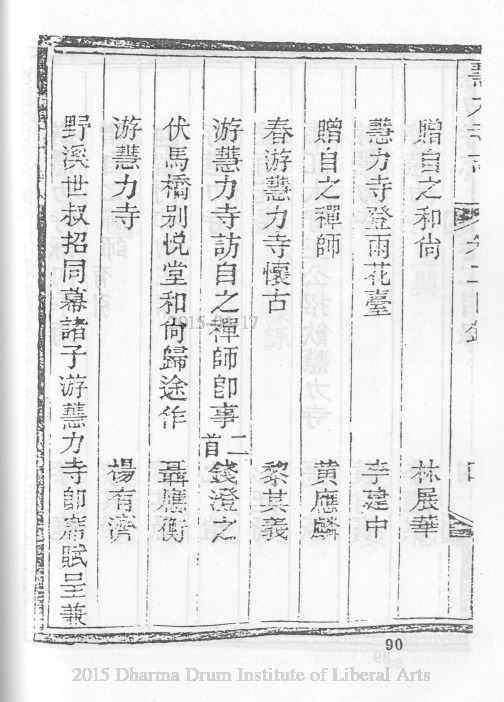 贈自之和尙　林展華
慧力寺登雨花臺　李建中
贈自之禪師　黃應麟
春游慧力寺懷古　黎其義
游慧力寺訪自之禪師卽事二首　錢澄之
伏馬橋别悅堂和尙歸途作　聶應衡
游慧力寺　楊有濟
野溪世叔招同幕諸子游慧力寺卽席賦呈兼
90
2015 Dharma Drum Institute of Liberal Arts